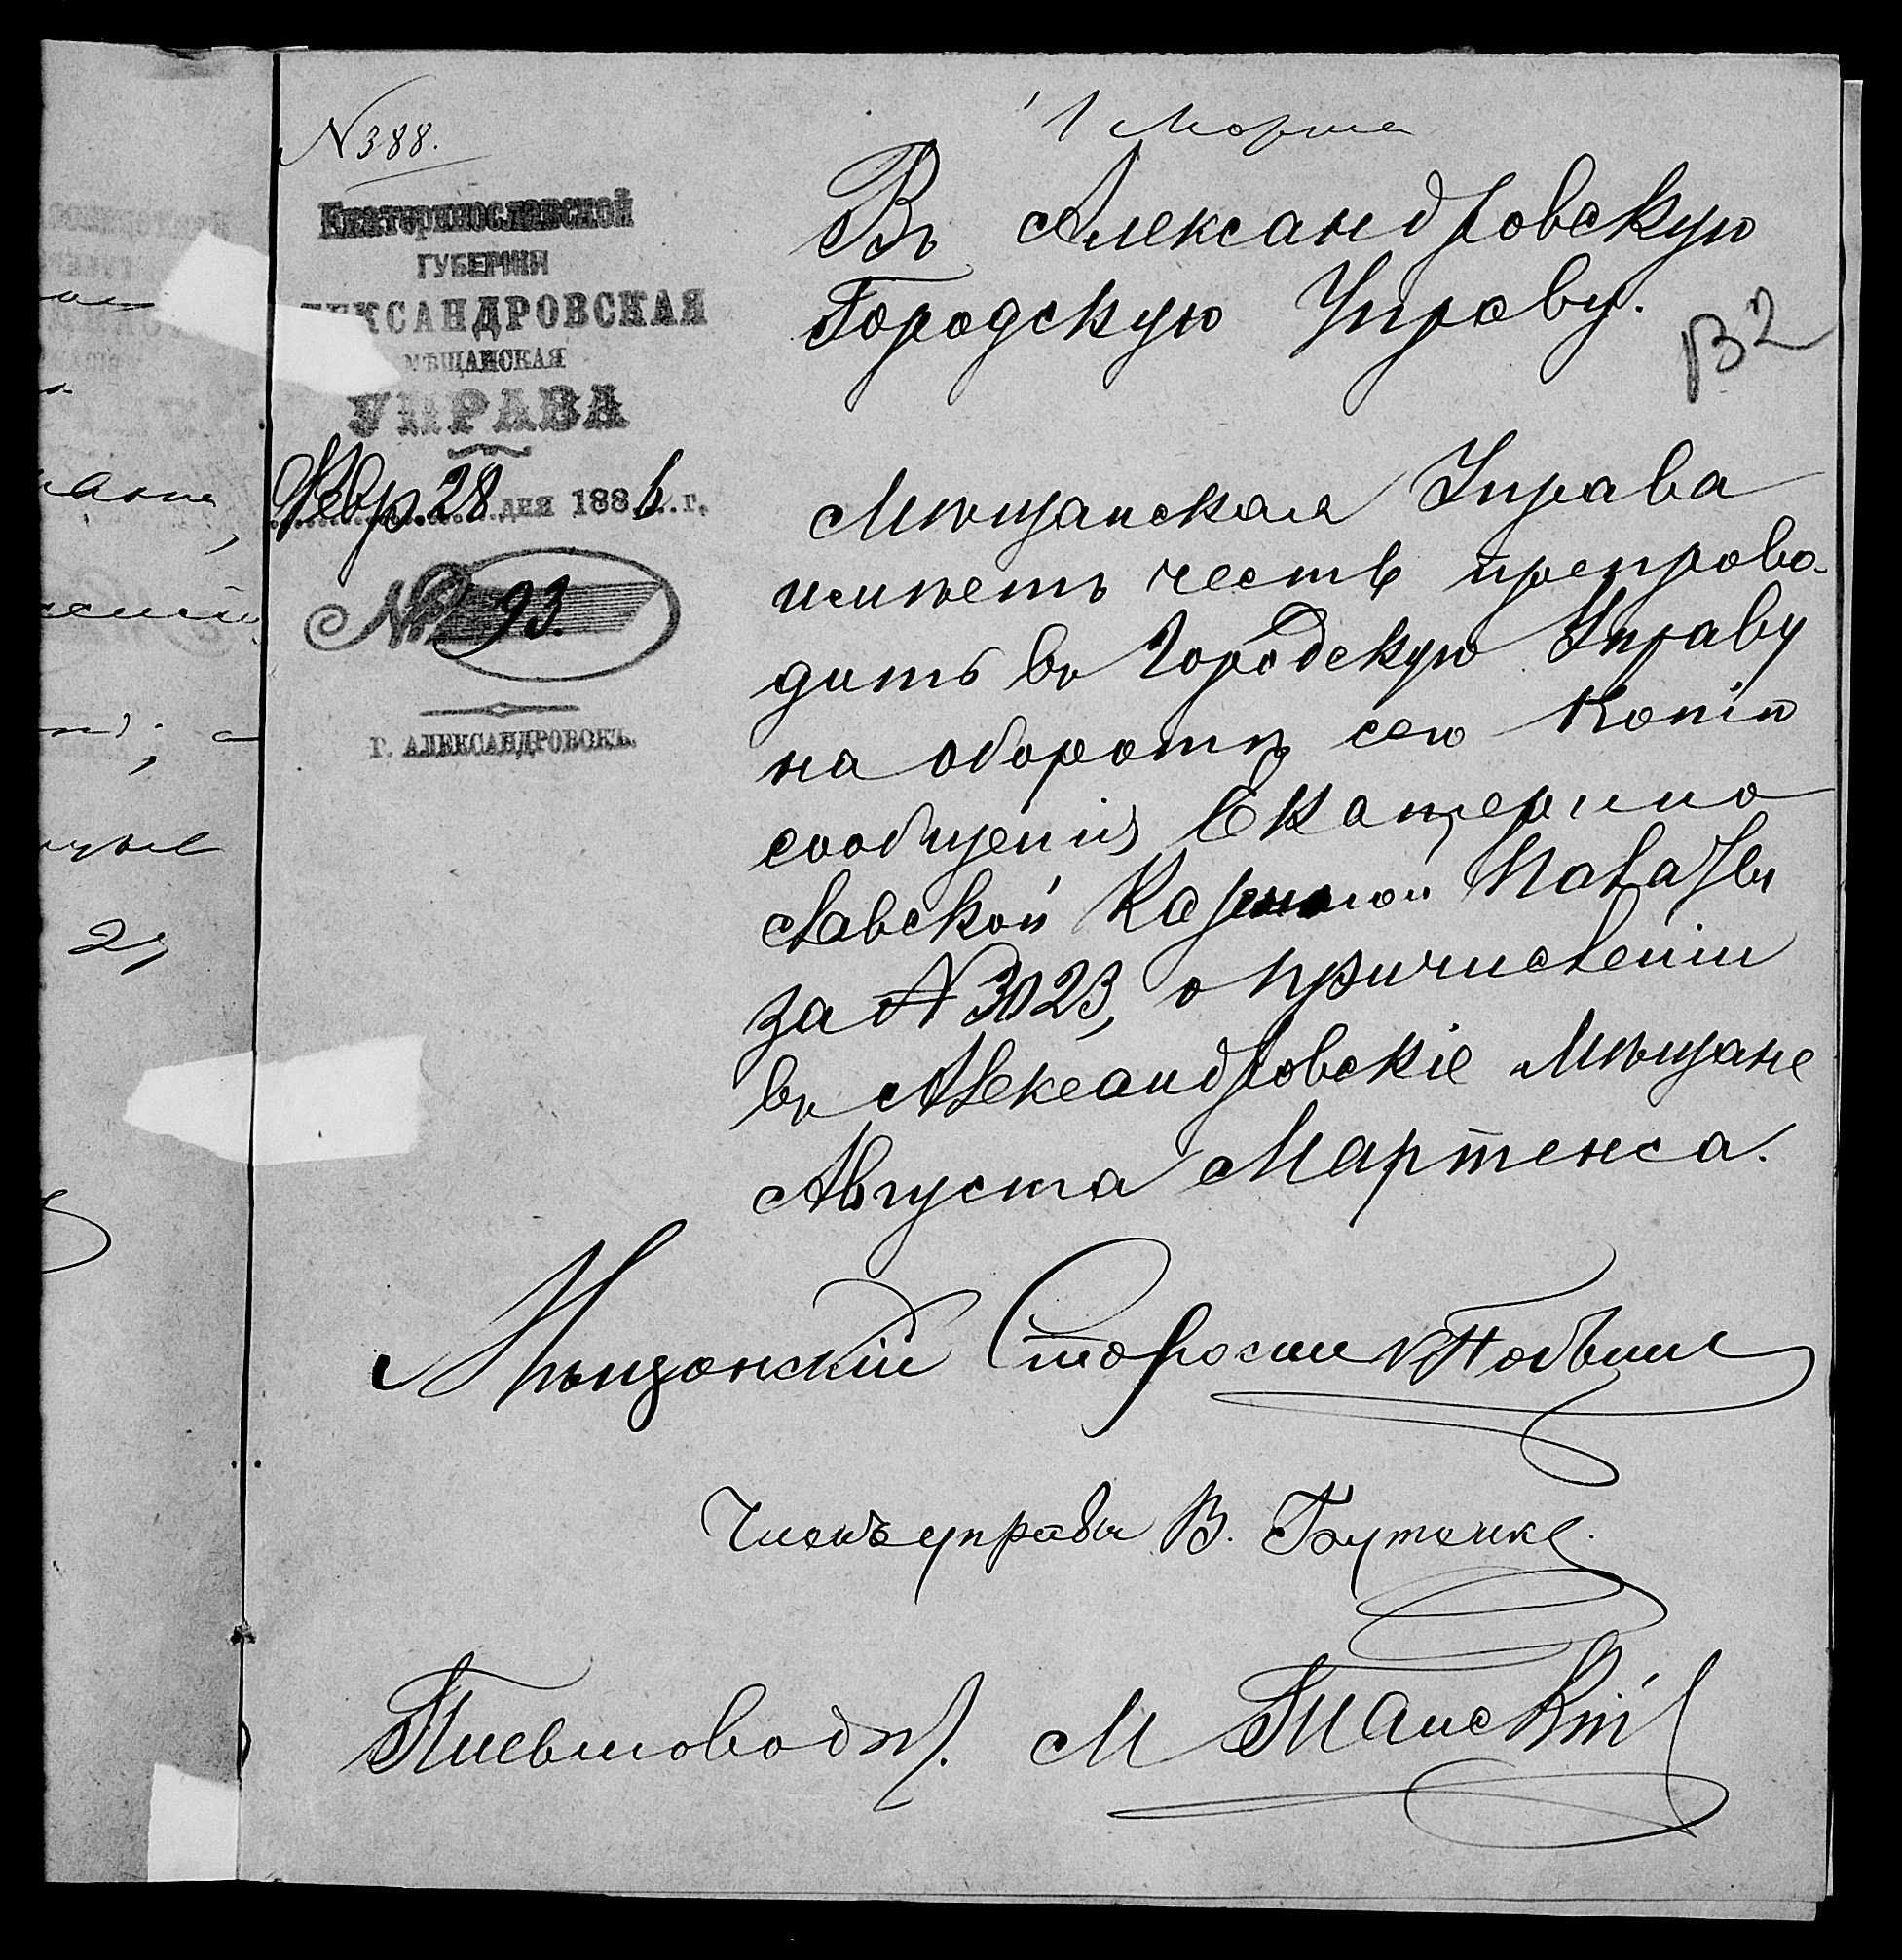 № 388.
1 Марта
Екатеринославской
ГУБЕРНІИ
ЕКСАНДРОВСКАЯ
МѢЩАНСКАЯ
УПРАВА
Февр 28 дня 1886 г.
№ 93.
Г. АЛЕКСАНДРОВСКЪ.
Въ Александровскую
Городскую Управу.
Мѣщанская Управа
имѣетъ честь препрово-
дить въ Городскую Управу
на оборотѣ сего копію
сообщенія Екатерино
славской Казенной Палаты
за № 3023, о причисленіи
въ Александровскіе Мѣщане
Августа Мартенса.
Мѣщанскій Староста
Членъ управы В. Бутенко.
Письмоводит. М